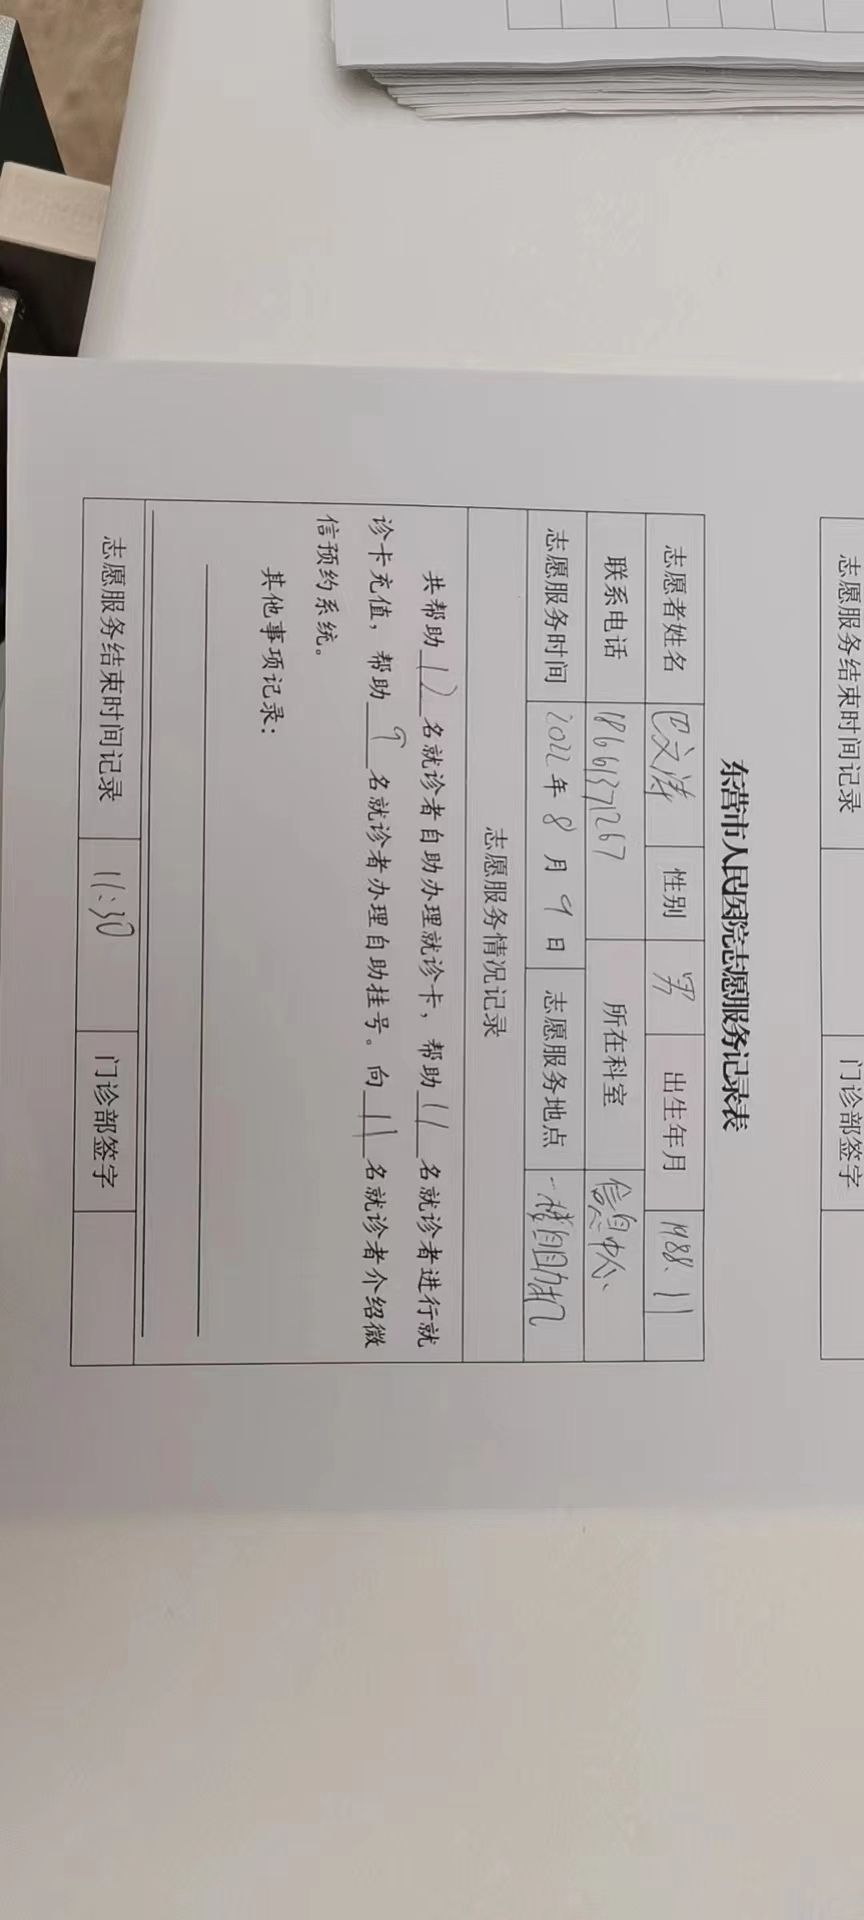 志愿服务结束时间记录 门诊部签字
东营市人民医院志愿服务记录表
志愿者姓名 巴文涛 性别 男 出生年月 1988.11
联系电话 18661371267 所在科室 信息中心
志愿服务时间 2022年8月9日 志愿服务地点 一楼自助机
志愿服务情况记录
共帮助12名就诊者自助办理就诊卡，帮助11名就诊者进行就
诊卡充值，帮助9名就诊者办理自助挂号。向11名就诊者介绍微
信预约系统。
其他事项记录：
志愿服务结束时间记录 11:30 门诊部签字